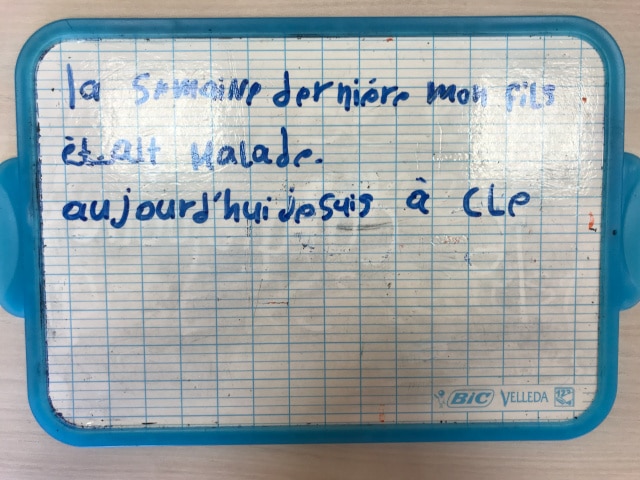 la semaine dernière mon fils
était malade.
aujourd'hui je suis à CLe
BIC VELLEDA